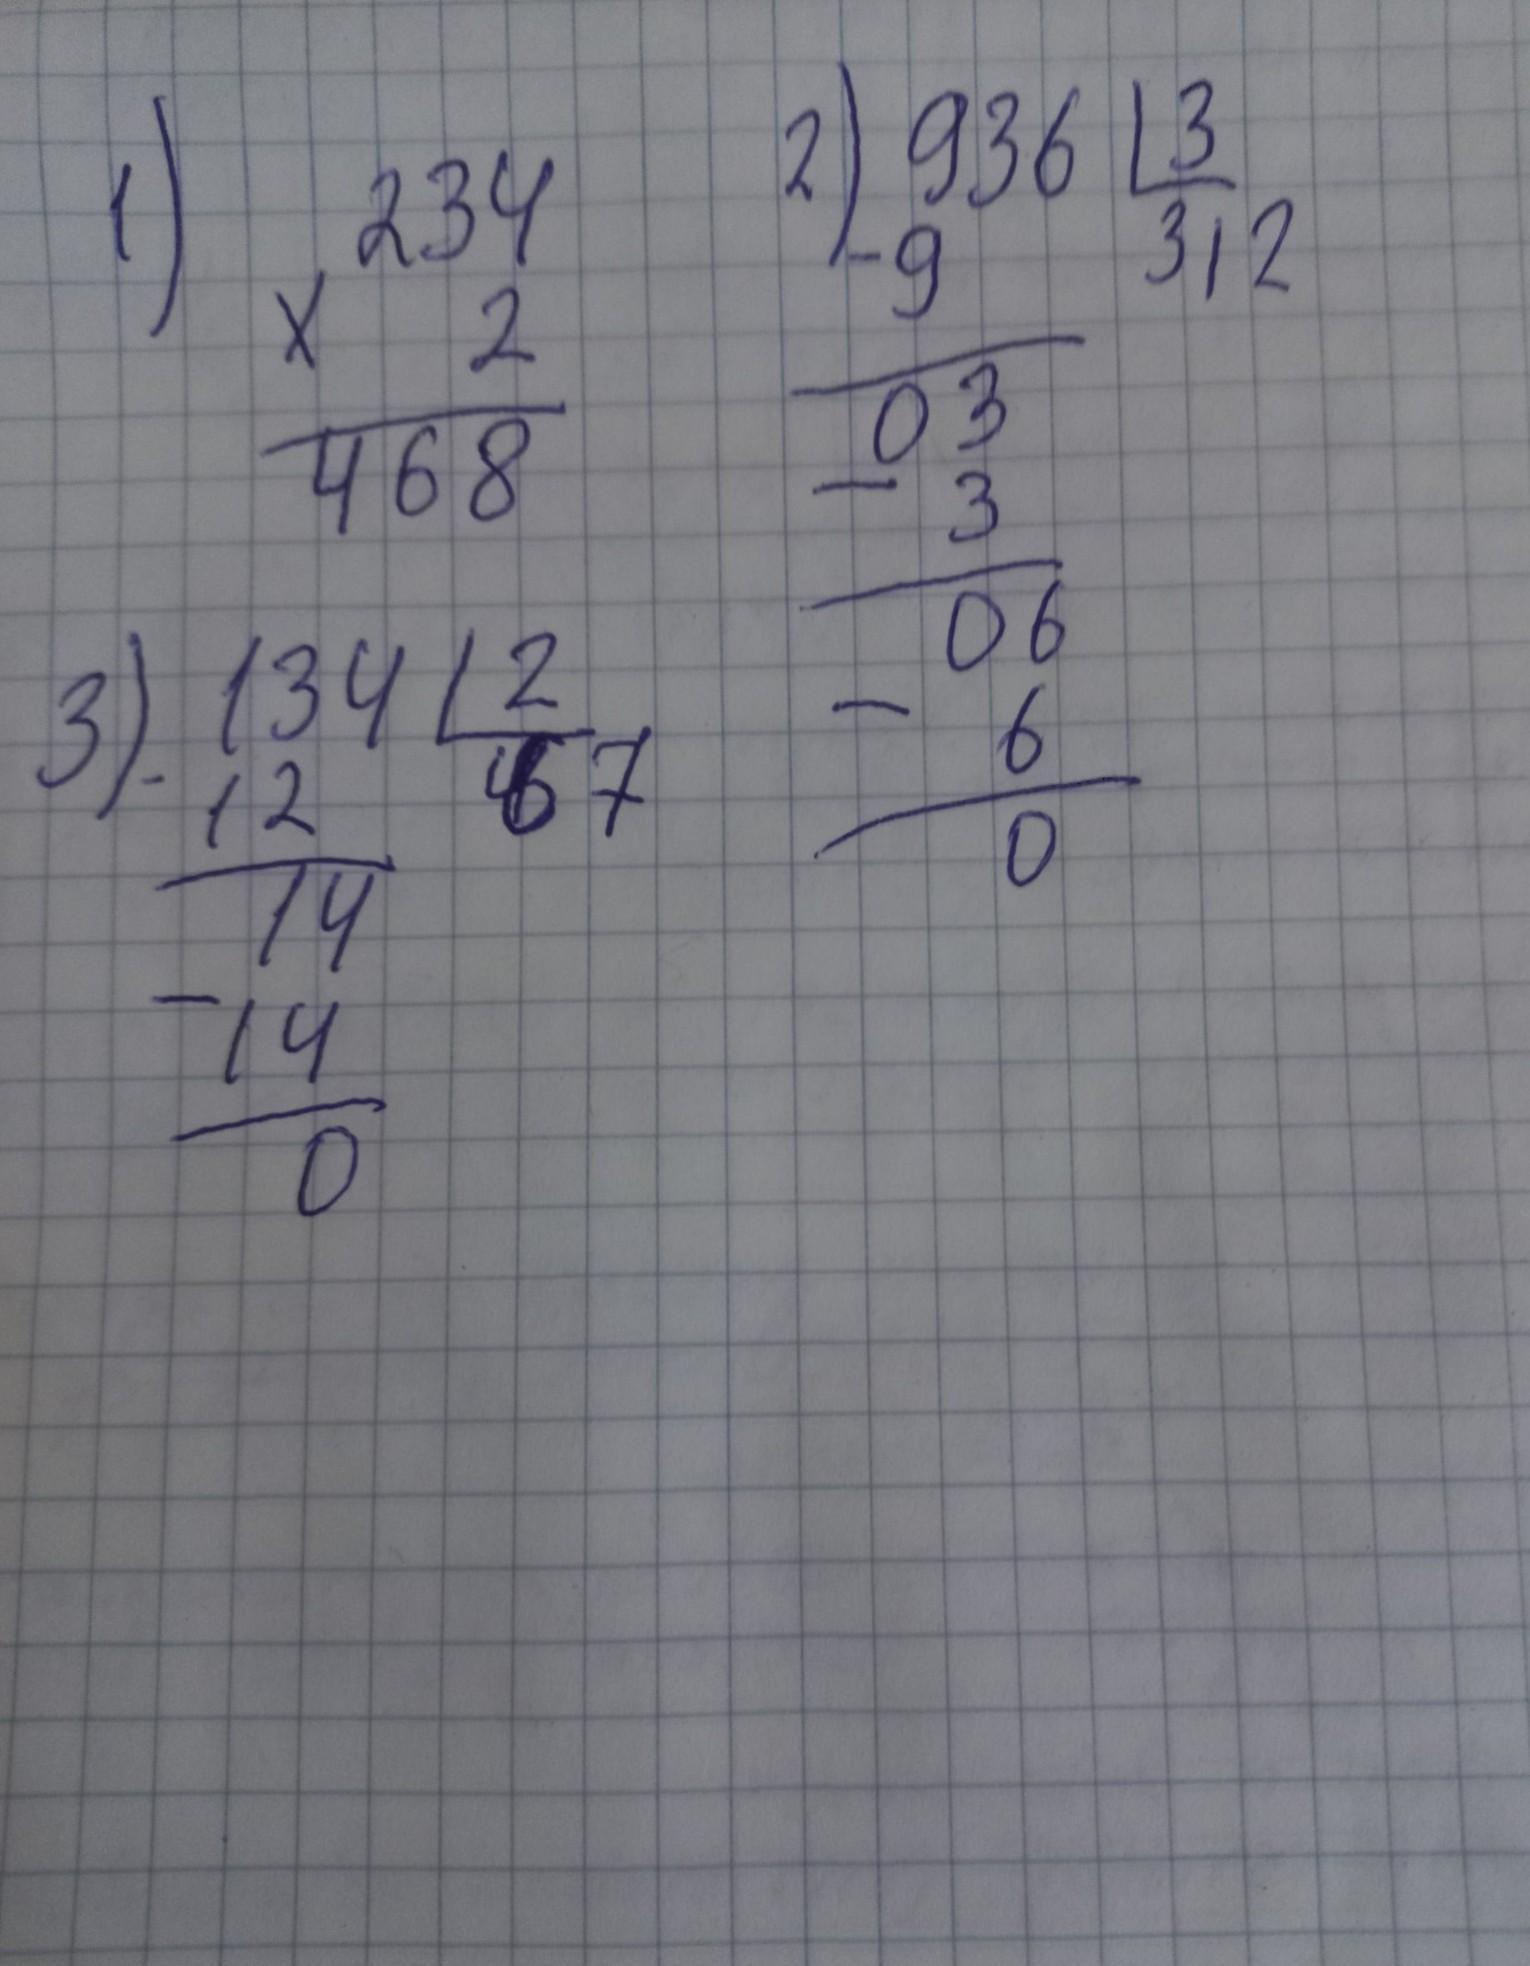 1) 234
x 2
468
2) 936 | 3
-9 312
03
- 3
06
- 6
0
3) 134 | 2
- 12 67
14
- 14
0